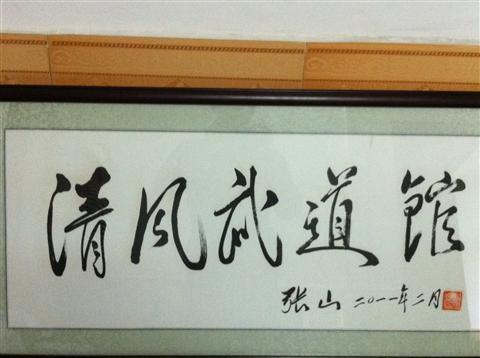 清风武道馆
张山 二〇一一年二月